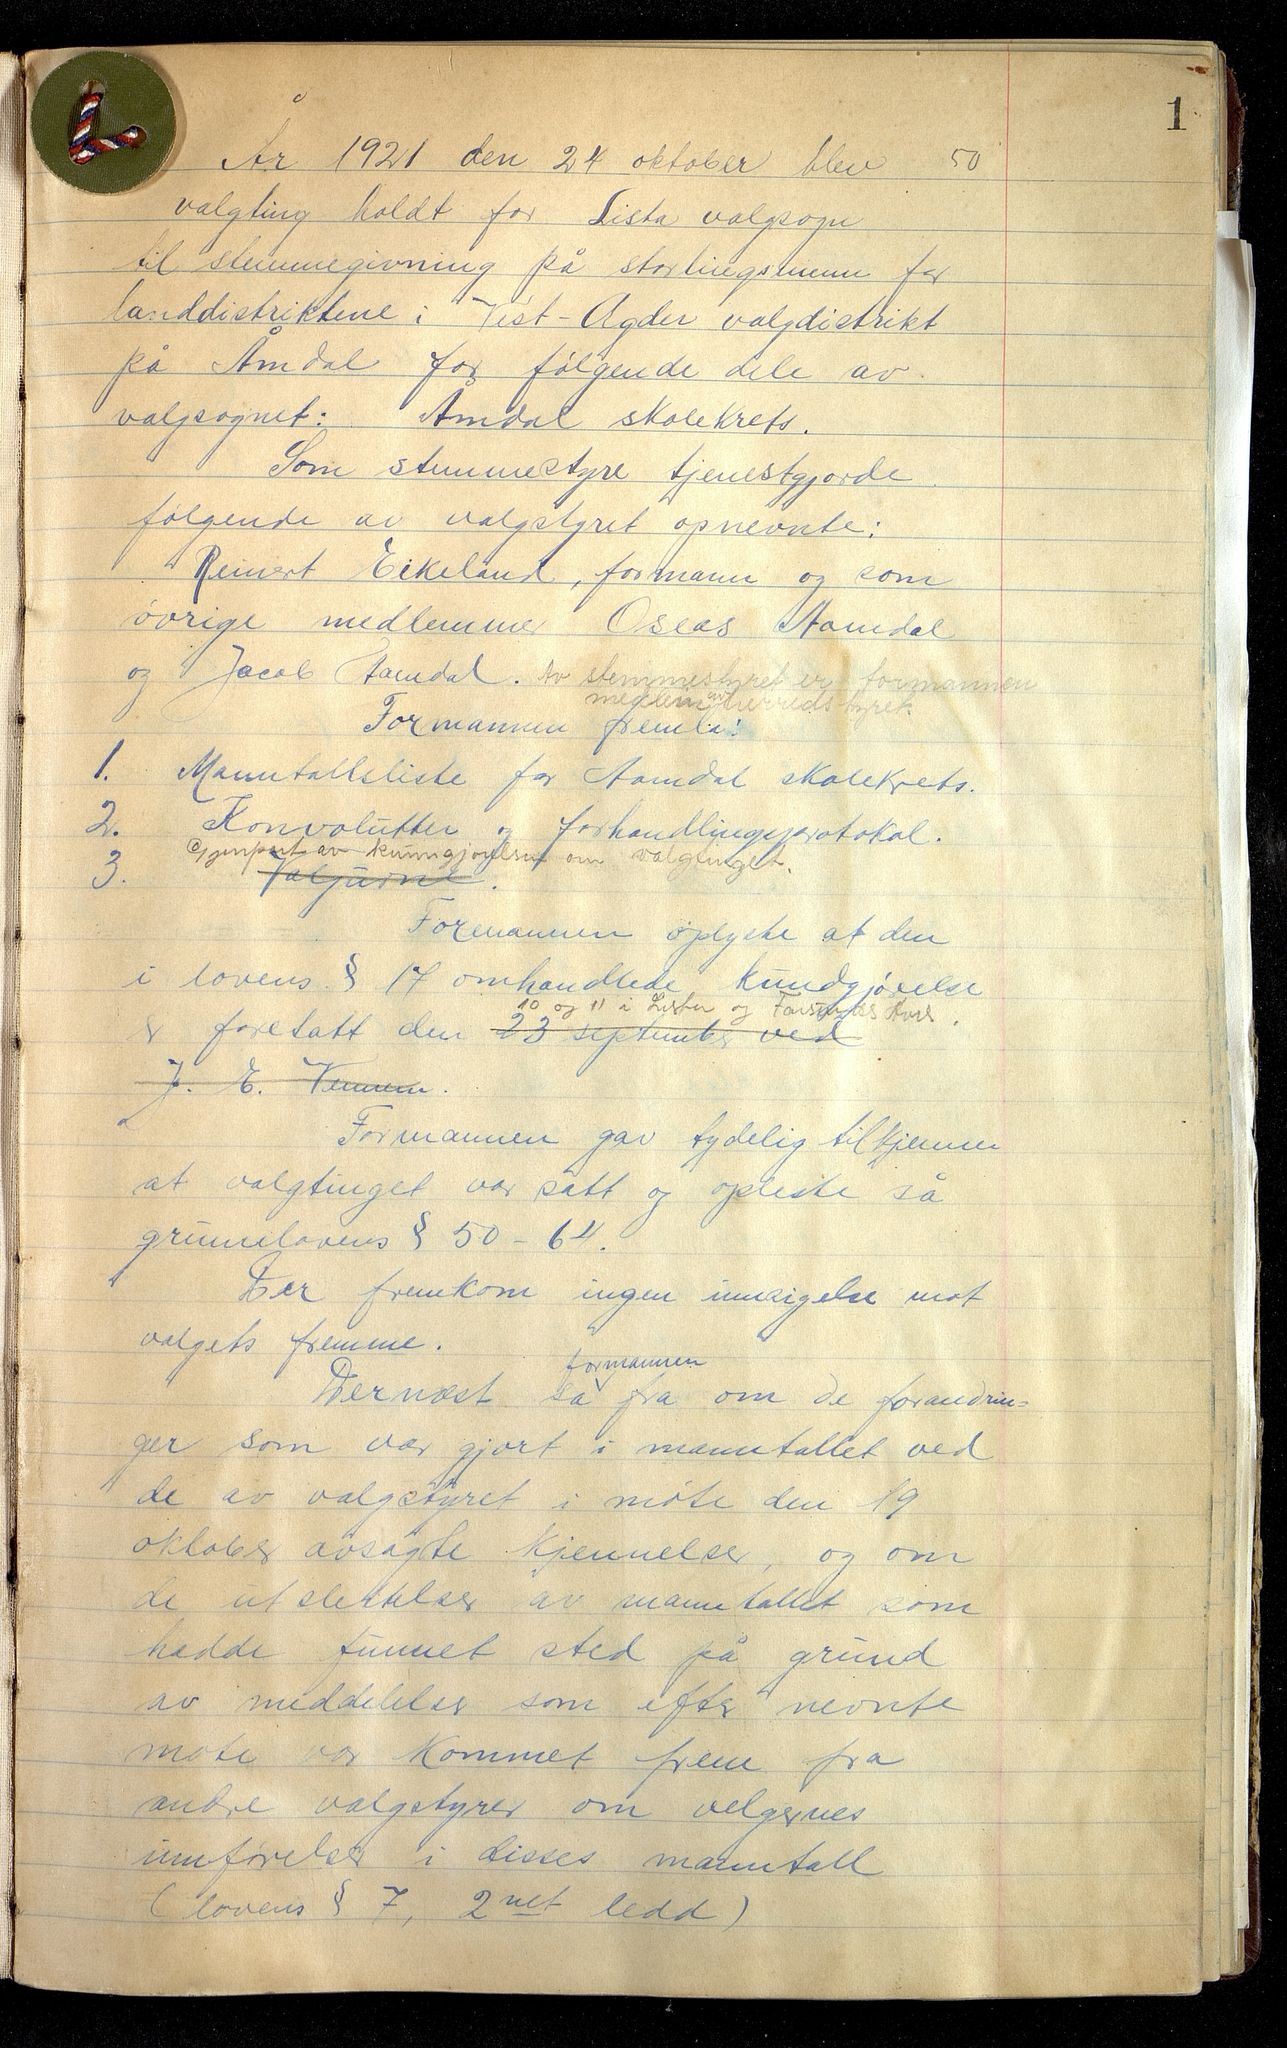 1
År 1921 den 24 oktober blev 50
valgting holdt for Lista valgsogn
til stemmegivning på stortingsmenn for
landdistriktene i Vest-Agder valgdistrikt
på Åmdal for følgende dele av
valgsognet: Åmdal skolekrets.
Som stemmestyre tjenestgjorde
følgende av valgstyret opnevnte:
Reinert Eikeland, formann og som
øvrige medlemmer Oseas Aamdal
og Jacob Aamdal. Av stemmestyret er formannen
medlem av herredstyret.
Formannen fremla:
1. Manntallsliste for Aamdal skolekrets.
2. Konvolutter og forhandlingsprotokol.
Gjenpart av kunngjørelsen om valgtinget.
3. Valgurne.
Formannen oplyste at den
i lovens § 17 omhandlede kundgjørelse
10 og 11 i Lister og Farsunds Avis.
er foretatt den 23 september ved
J. E. Vennem.
Formannen gav tydelig tilkjenne
at valgtinget var satt og opleste så
grunnlovens § 50 - 64.
Der fremkom ingen innsigelse mot
valgets fremme.
formannen
Dernæst sa fra om de forandrin=
ger som var gjort i manntallet ved
de av valgstyret i møte den 19
oktober avsagte kjennelser, og om
de utslettelser av manntallet som
hadde funnet sted på grund
av meddelelser som efter nevnte
møte var kommet frem fra
andre valgstyrer om velgernes
innførelse i disses manntall
(lovens § 7, 2net ledd)